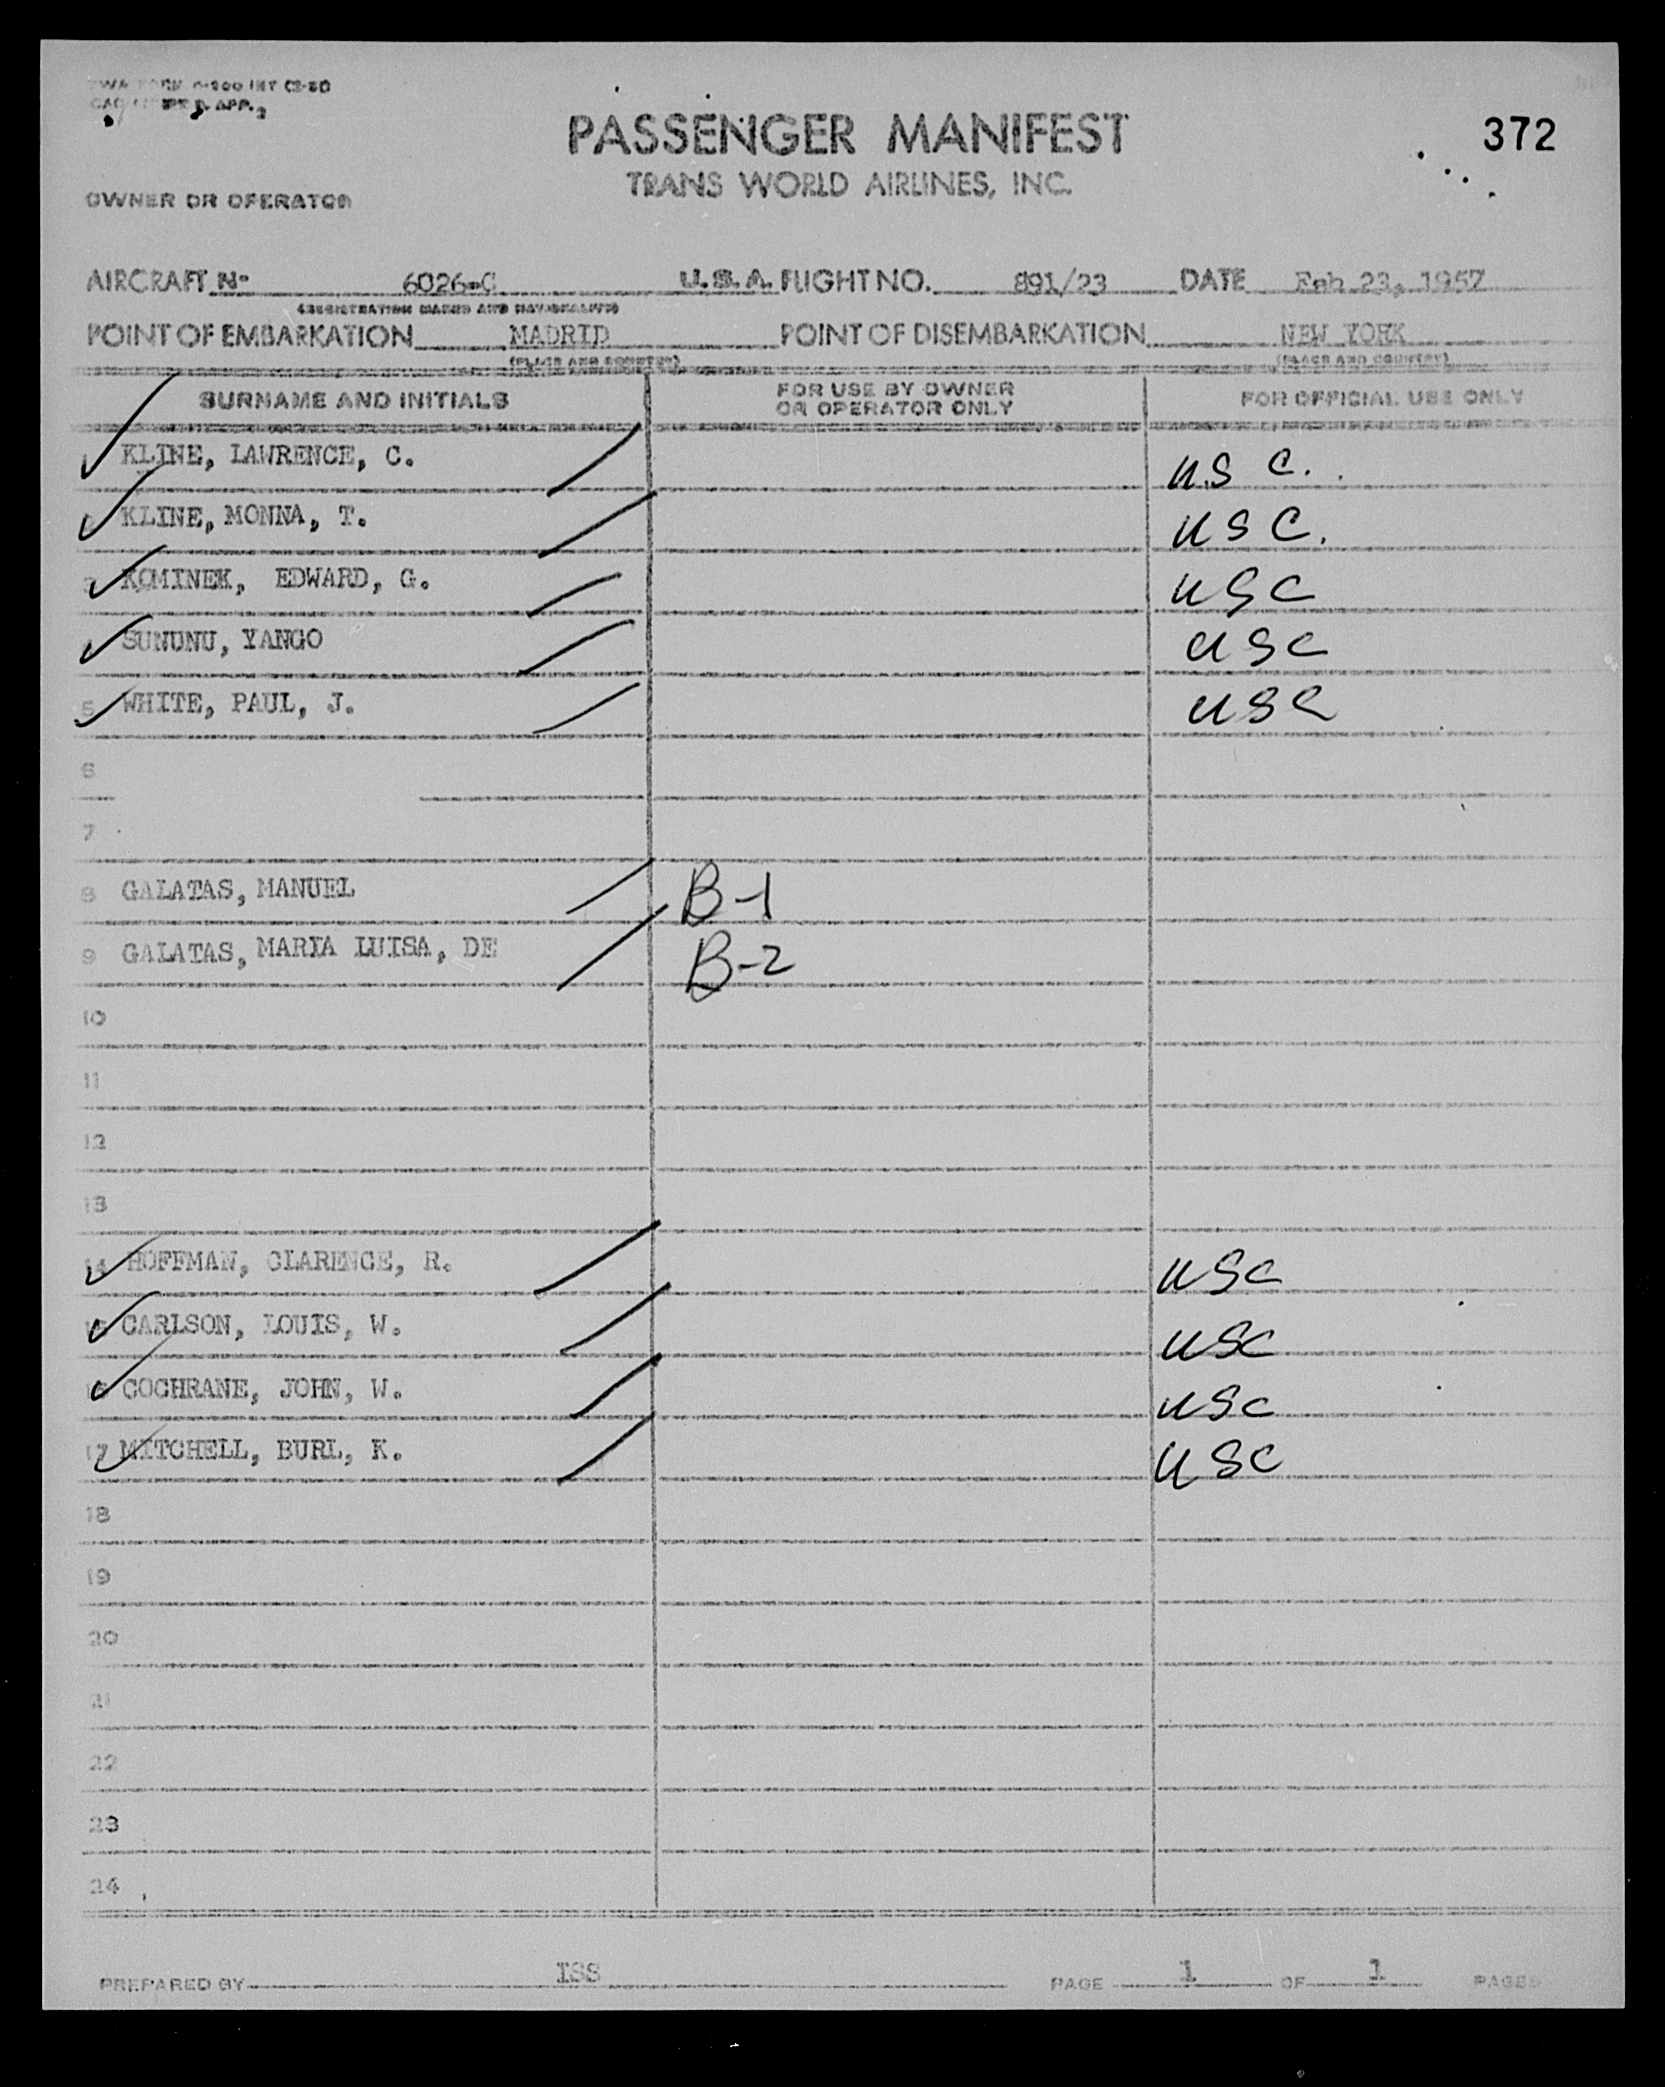 372
PASSENGER MANIFEST
TRANS WORLD AIRLINES, INC.
OWNER OR OPERATOR
AIRCRAFT No 6026-C U.S.A. FLIGHT NO. 891/23 DATE Feb 23, 1957
(REGISTRATION MARKS AND NATIONALITY)
POINT OF EMBARKATION MADRID POINT OF DISEMBARKATION NEW YORK
(PLACE AND COUNTRY) (PLACE AND COUNTRY)
SURNAME AND INITIALS FOR USE BY OWNER OR OPERATOR ONLY FOR OFFICIAL USE ONLY
KLINE, LAWRENCE, C. U.S C.
KLINE, MONNA, T. USC.
3 KOMINEK, EDWARD, G. USC
4 SUNUNU, YANGO USC
5 WHITE, PAUL, J. USC
6
7
8 GALATAS, MANUEL B-1
9 GALATAS, MARIA LUISA, DE B-2
10
11
12
13
14 HOFFMAN, CLARENCE, R. USC
15 CARLSON, LOUIS, W. USC
16 COCHRANE, JOHN, W. USC
17 MITCHELL, BURL, K. USC
18
19
20
21
22
23
24
PREPARED BY ISS PAGE 1 OF 1 PAGES